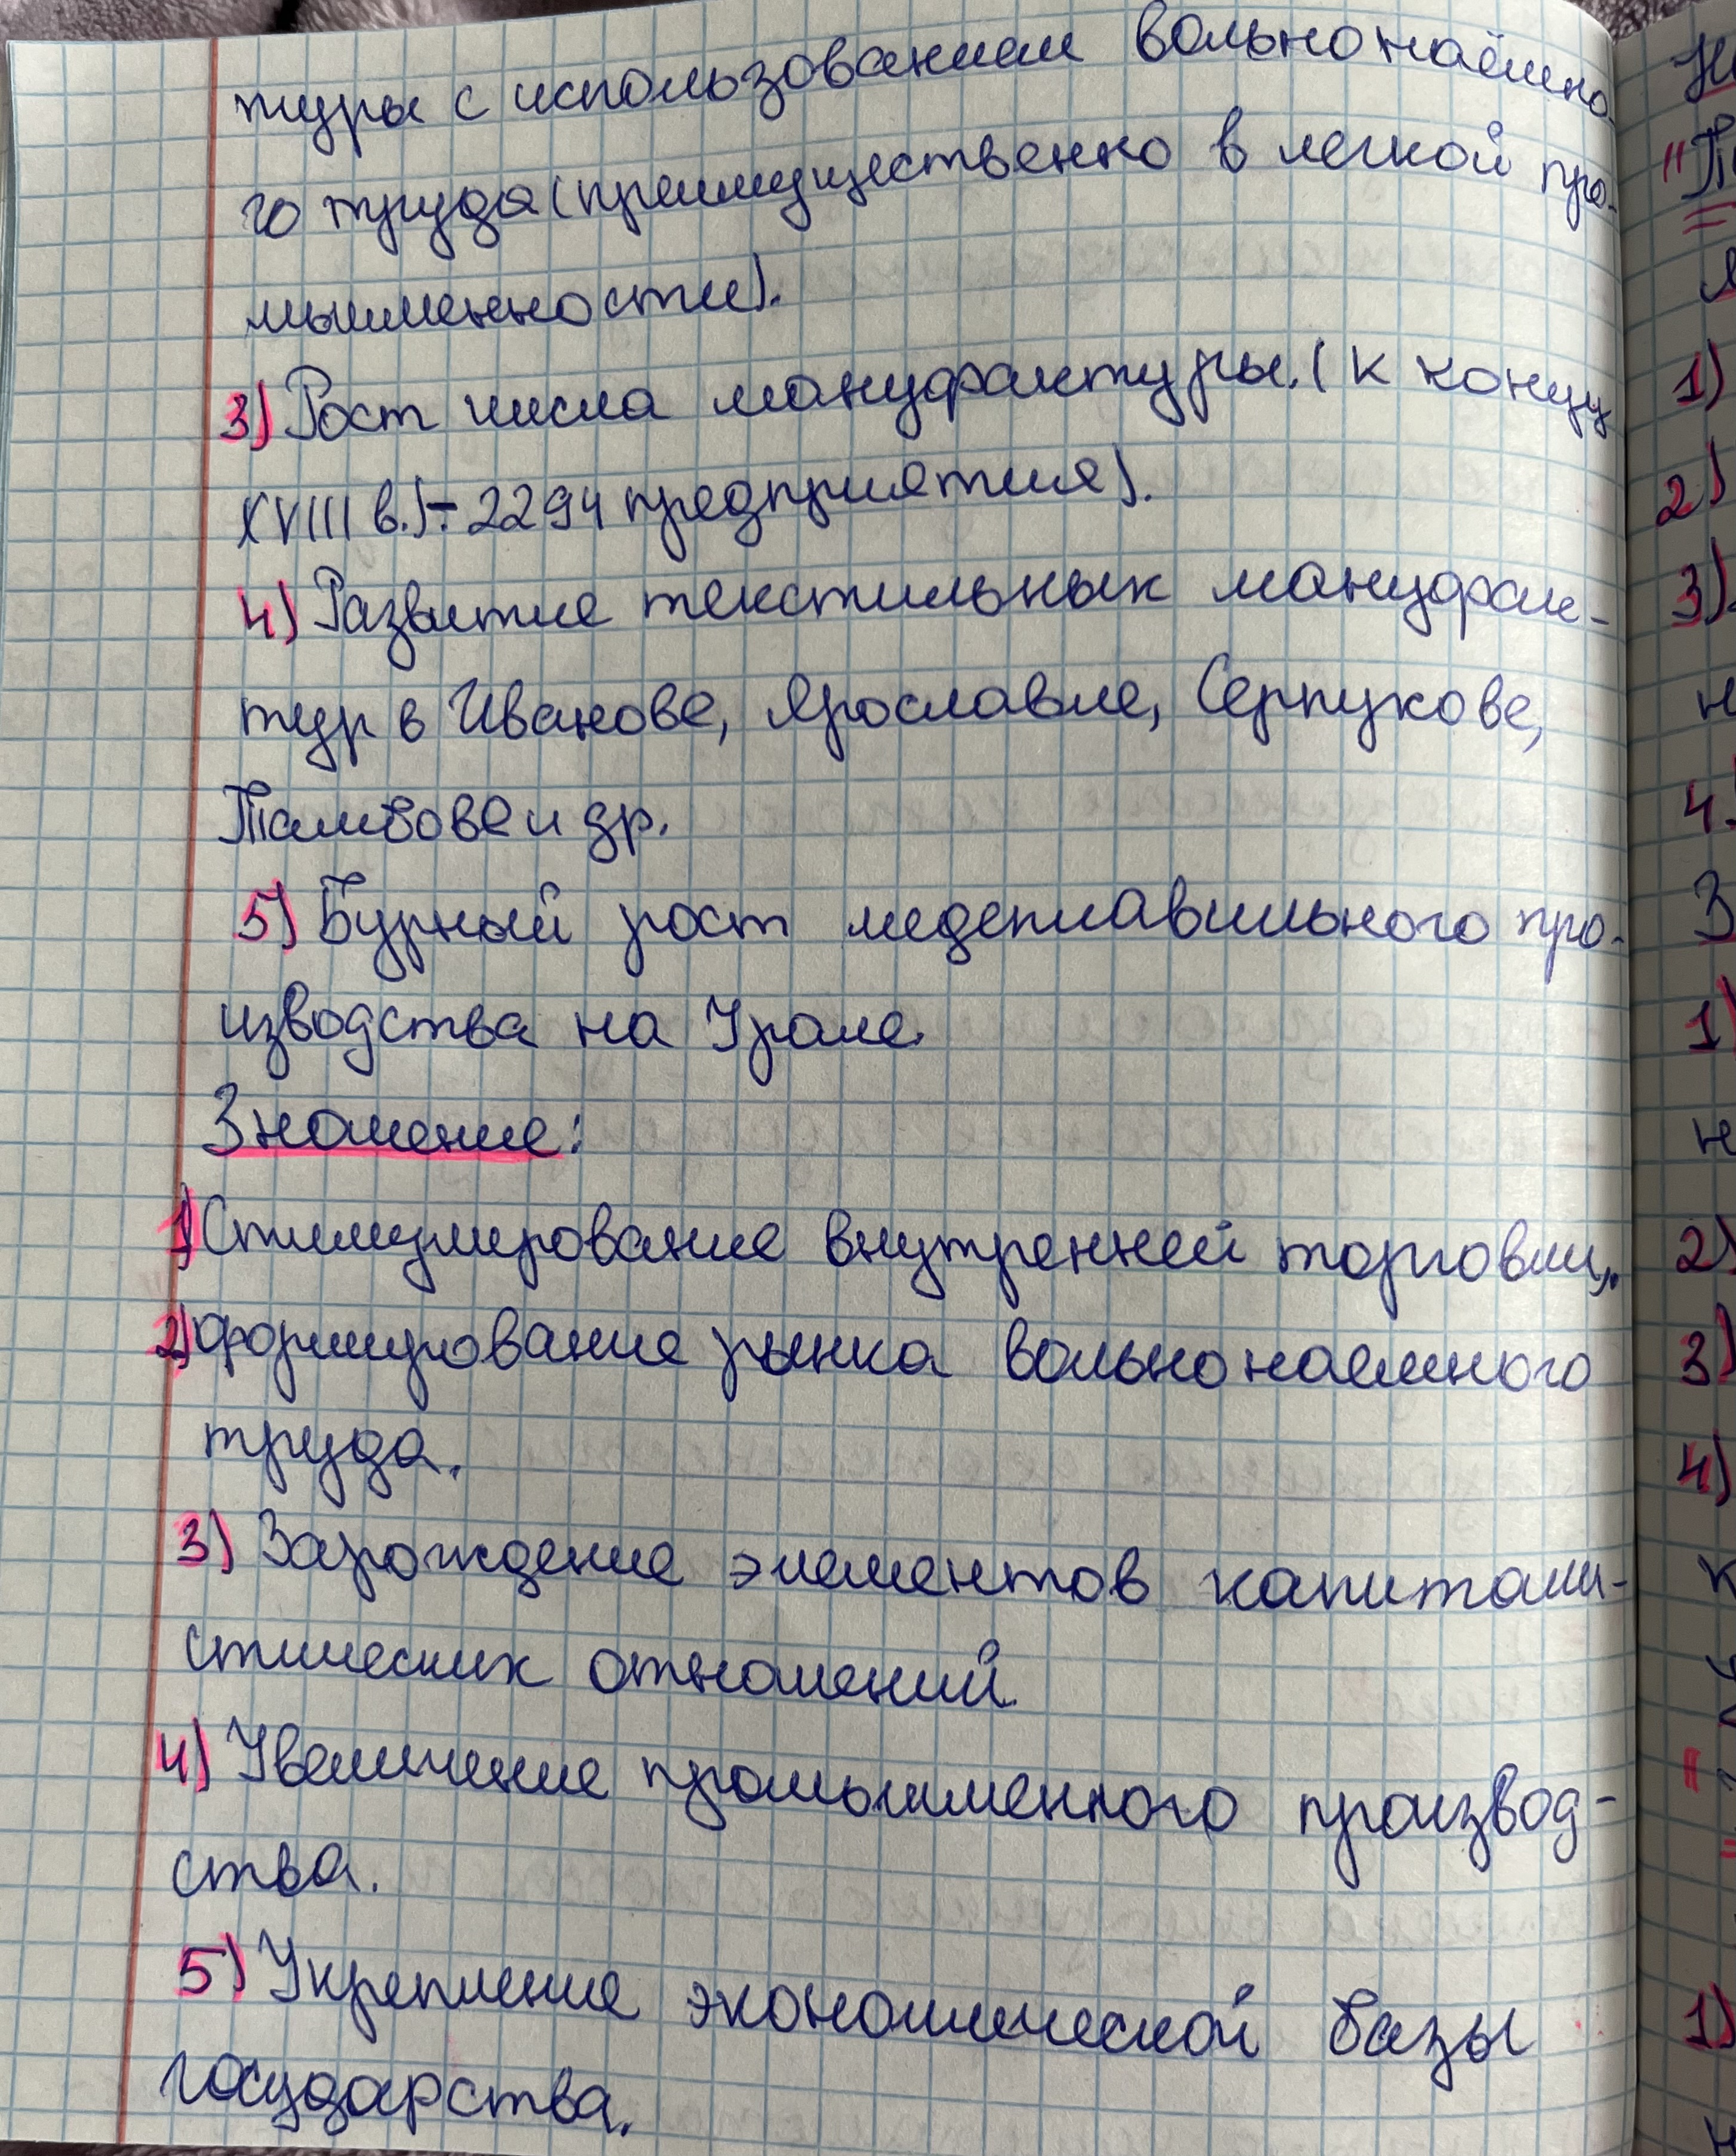 туры с использованием вольнонаёмно-
го труда (преимущественно в легкой про-
мышленности).
3) Рост числа мануфактуры. (к концу
XVIII в.) - 2294 предприятия).
4) Развитие текстильных мануфак-
тур в Иванове, Ярославле, Серпухове,
Тамбове и др.
5) Бурный рост медеплавильного про-
изводства на Урале.
Значение:
1) Стимулирование внутренней торговли.
2) Формирование рынка вольнонаемного
труда.
3) Зарождение элементов капитали-
стических отношений.
4) Увеличение промышленного производ-
ства.
5) Укрепление экономической базы
государства.
1)
2)
3)
4.
З
1)
2)
3)
4)
1)